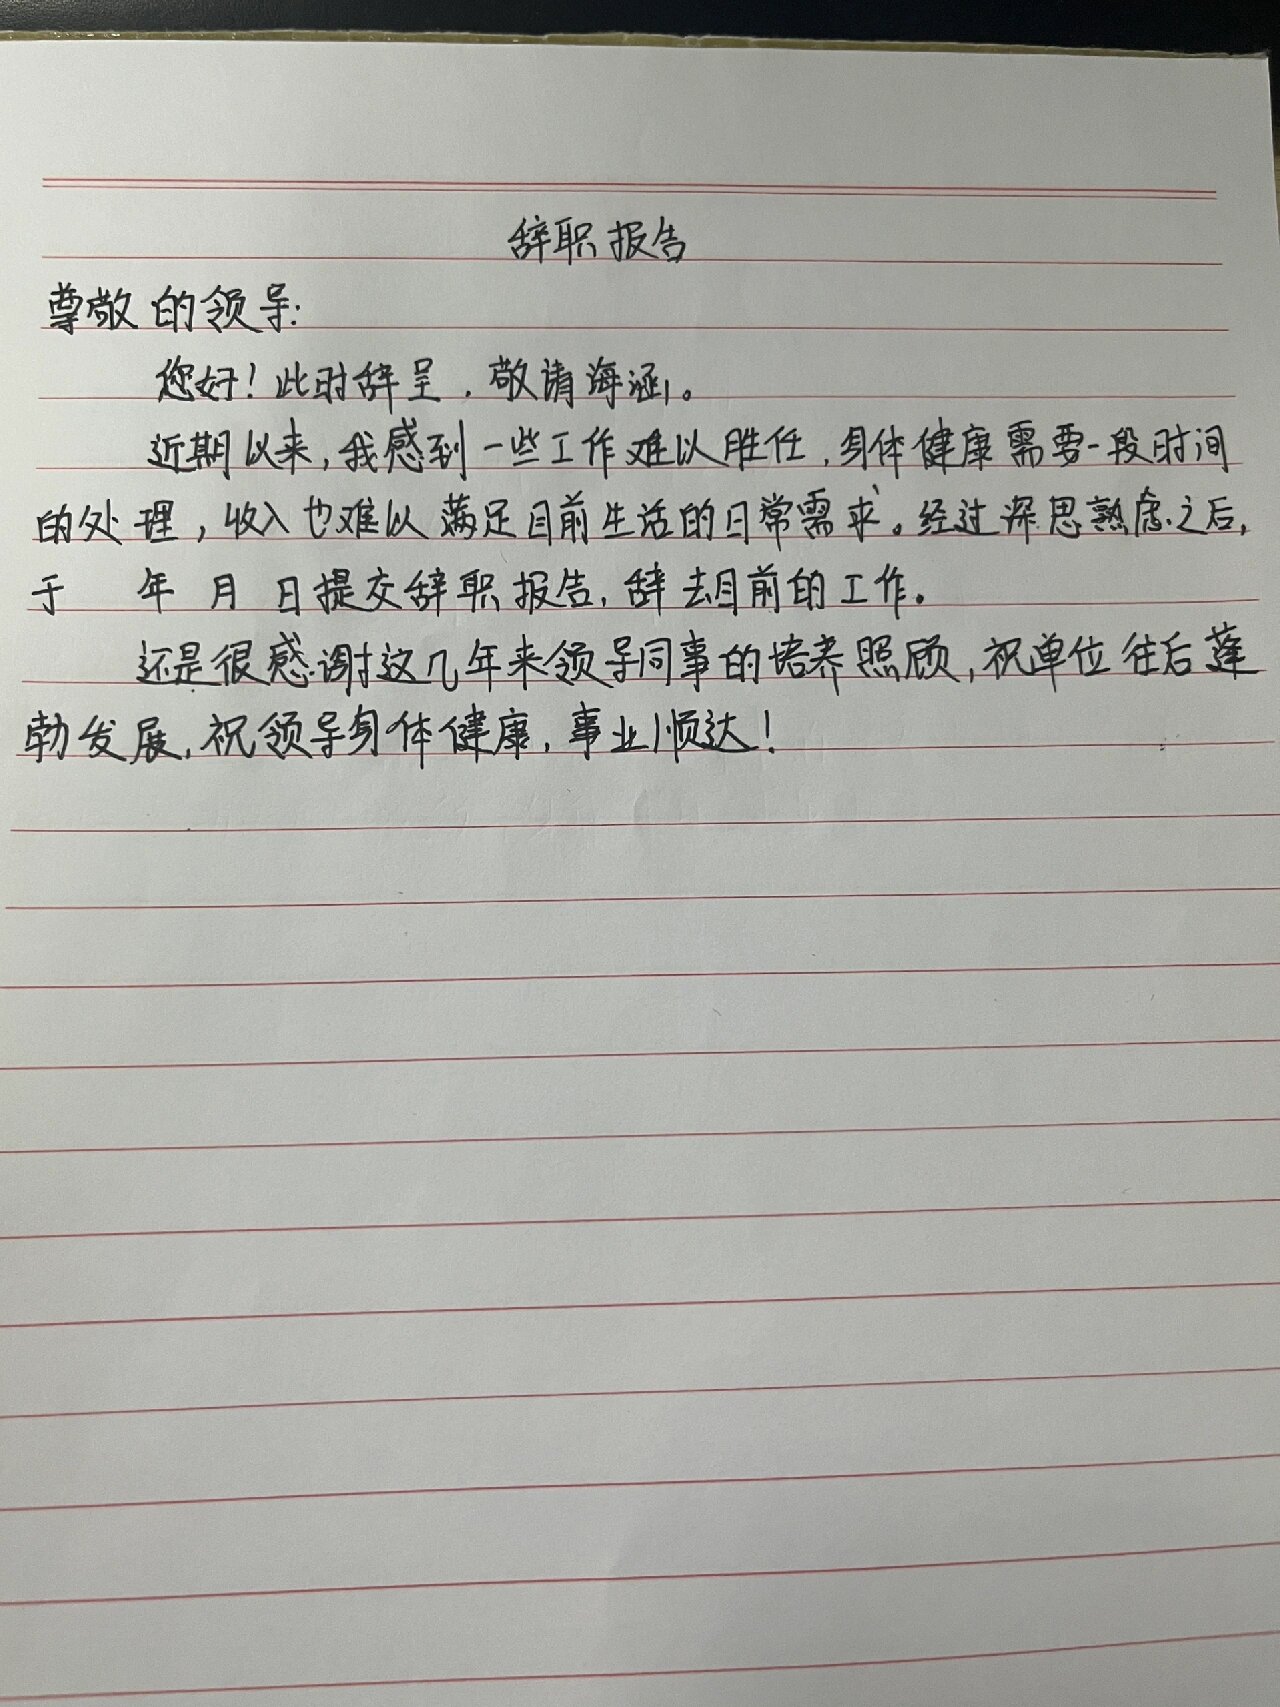 辞职报告
尊敬的领导:
您好!此时辞呈,敬请海涵。
近期以来,我感到一些工作难以胜任,身体健康需要一段时间
的处理,收入也难以满足目前生活的日常需求。经过深思熟虑之后,
于 年 月 日提交辞职报告,辞去目前的工作。
还是很感谢这几年来领导同事的培养照顾,祝单位往后蓬
勃发展,祝领导身体健康,事业顺达!